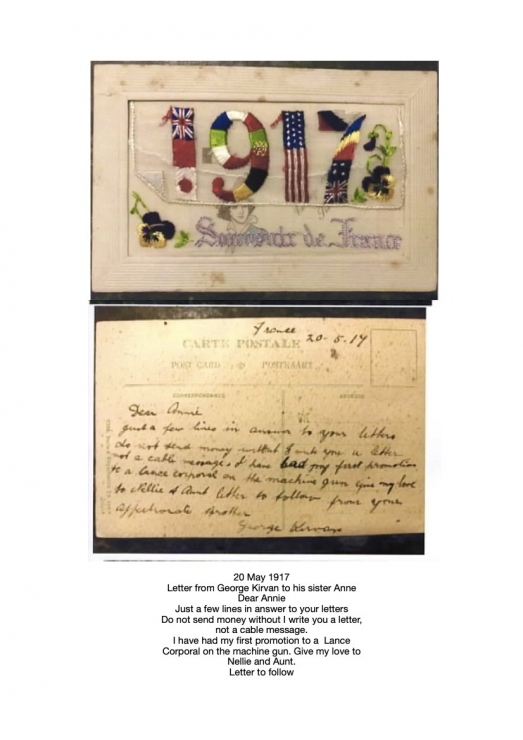 1917
Souvenir de France
France 20-5.17
CARTE POSTALE
POST CARD POSTKAART
CORRESPONDANCE ADRESSE
Dear Annie
Just a few lines in answer to your letters
do not send money without I write you a letter
not a cable message, I have had my first promotion
to a lance corporal on the machine gun Give my love
to Nellie & Aunt letter to follow from your
affectionate Brother
George Kirvan
20 May 1917
Letter from George Kirvan to his sister Anne
Dear Annie
Just a few lines in answer to your letters
Do not send money without I write you a letter,
not a cable message.
I have had my first promotion to a Lance
Corporal on the machine gun. Give my love to
Nellie and Aunt.
Letter to follow